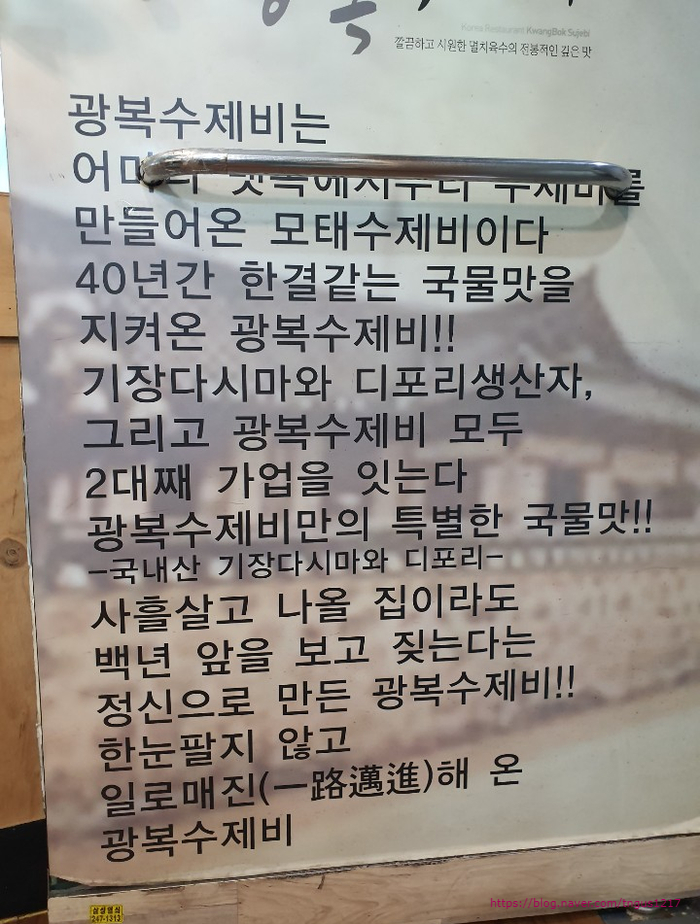 Korea Restaurant KwangBok Sujebi
깔끔하고 시원한 멸치육수의 전봉적인 깊은 맛
광복수제비는
만들어온 모태수제비이다
40년간 한결같는 국물맛을
지켜온 광복수제비!!
기장다시마와 디포리생산자,
그리고 광복수제비 모두
2대째 가업을 잇는다
광복수제비만의 특별한 국물맛!!
-국내산 기장다시마와 디포리-
사흘살고 나올 집이라도
백년 앞을 보고 짖는다는
정신으로 만든 광복수제비!!
한눈팔지 않고
일로매진(一路邁進)해 온
광복수제비
삼성열쇠
247-1313